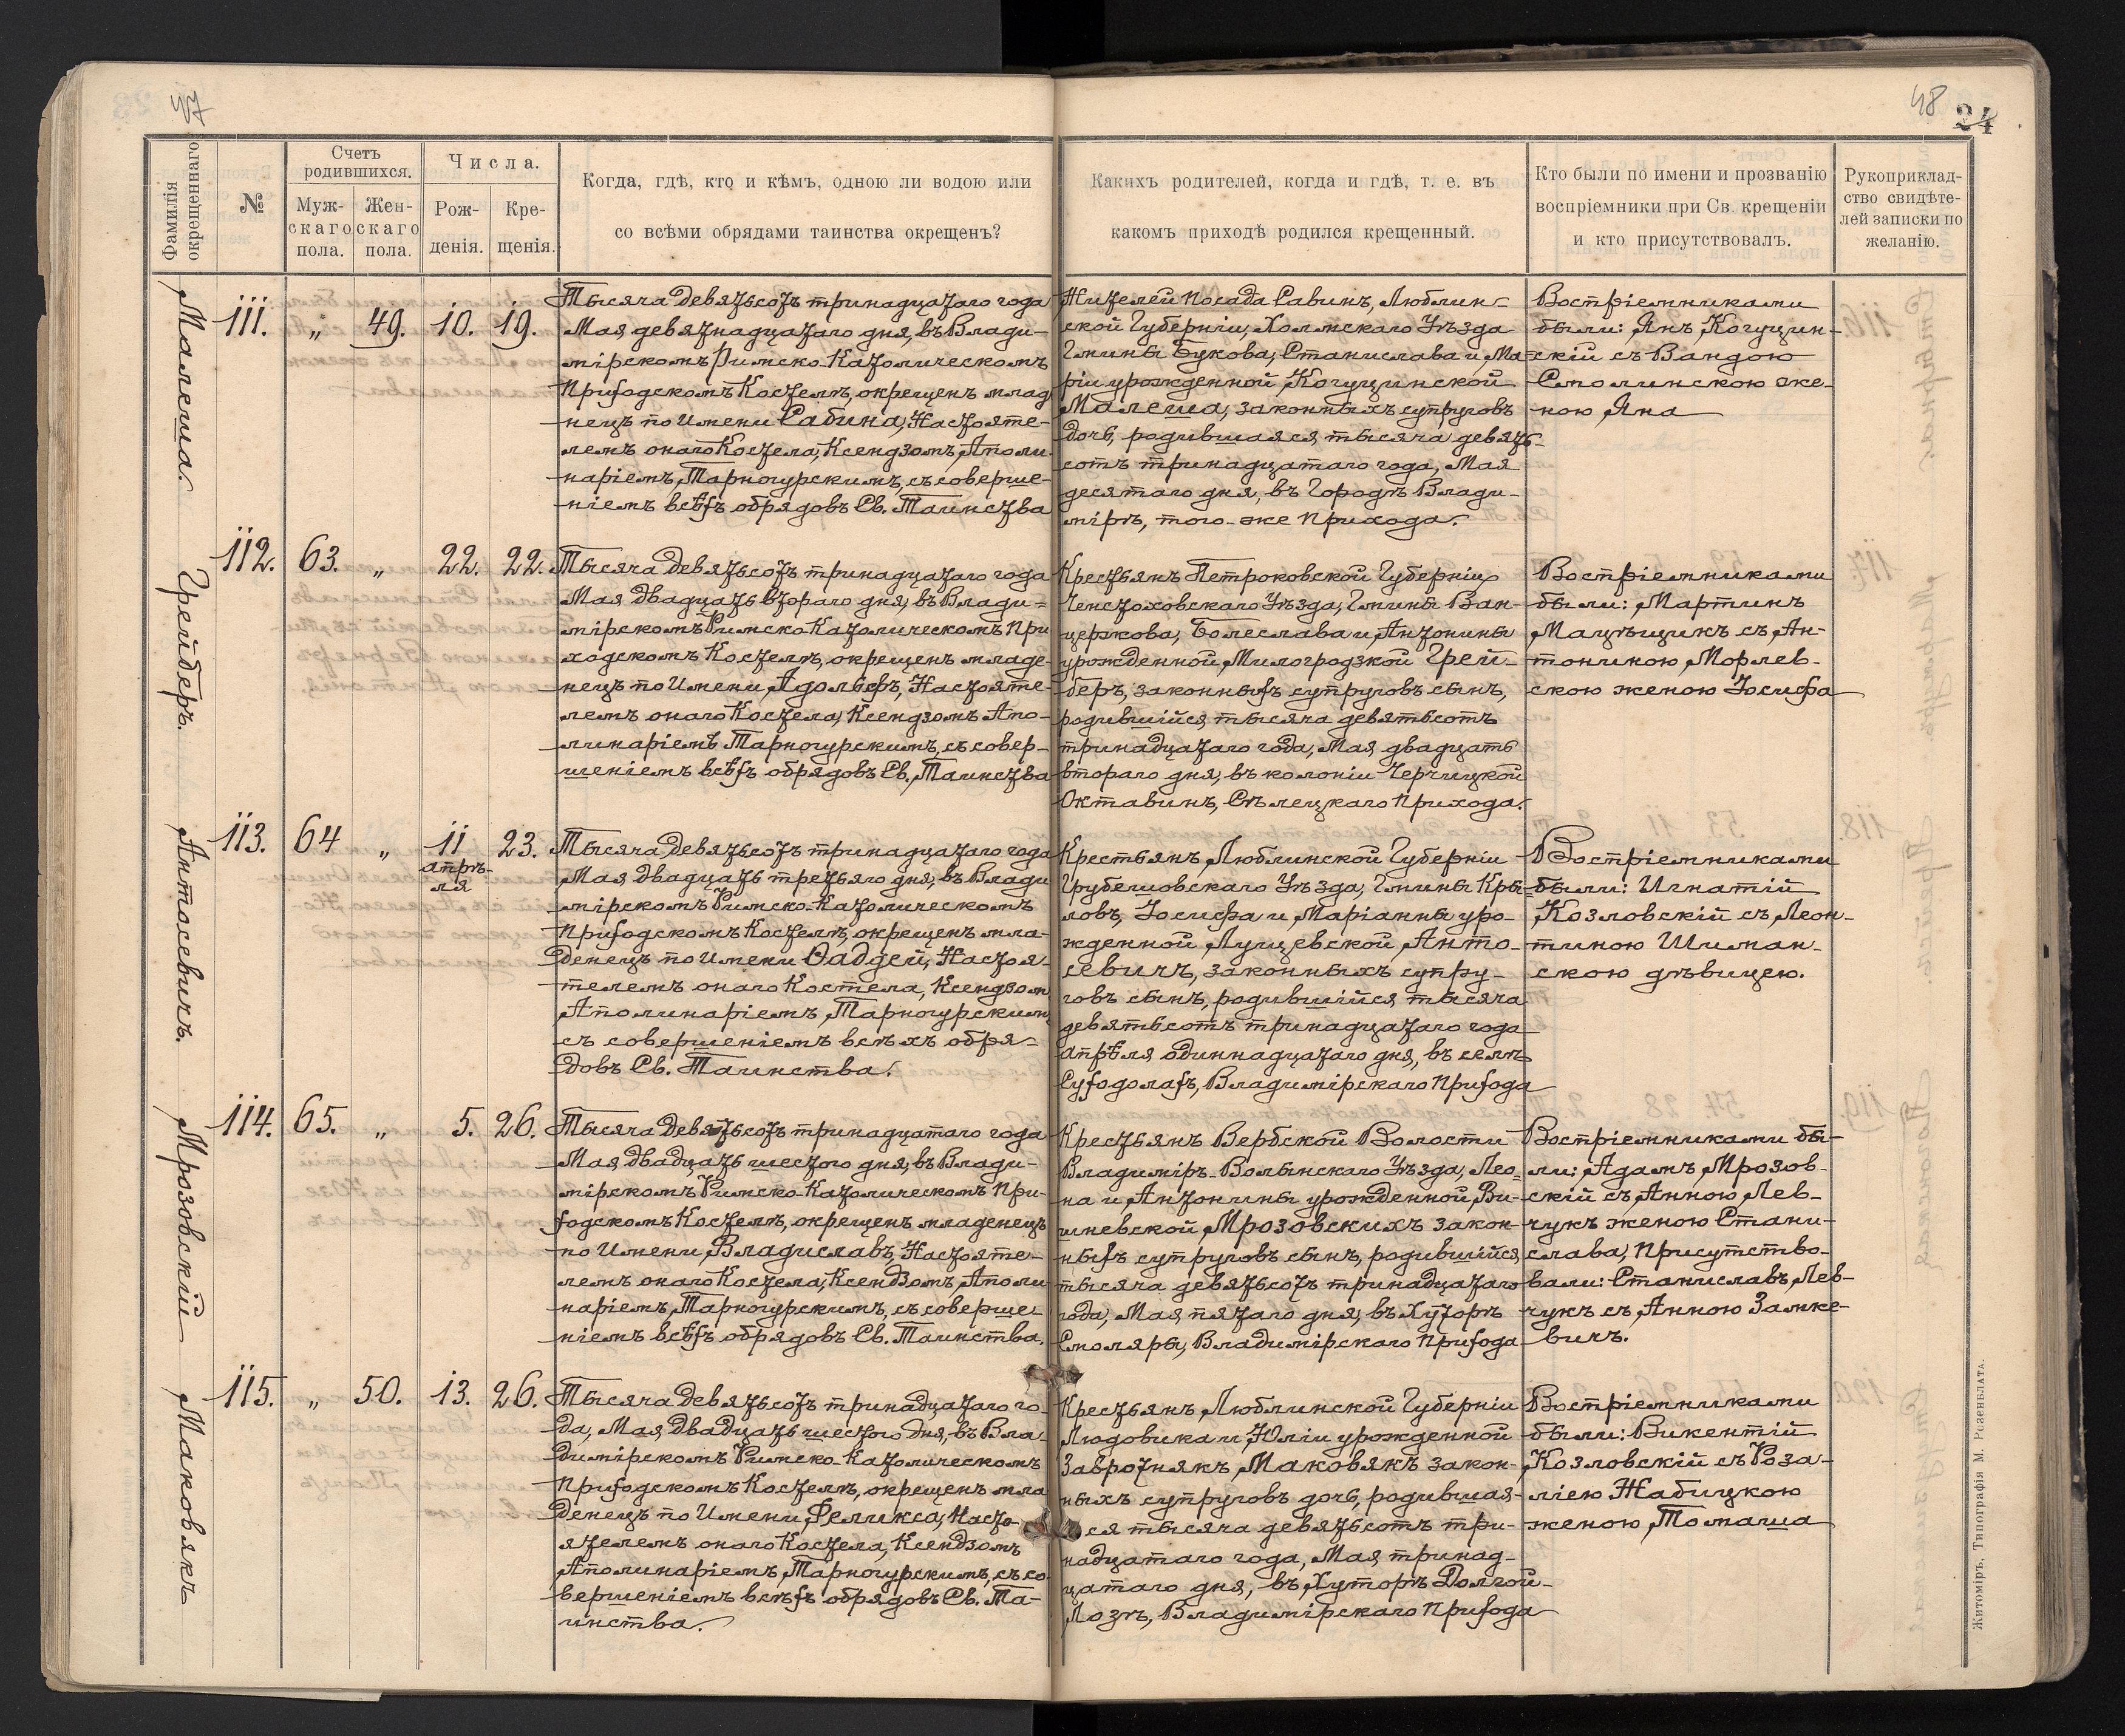 47
Фамилія окрещеннаго
№
Счетъ родившихся.
Муж-
скаго
пола.
Жен-
скаго
пола.
Числа.
Рож-
денія.
Кре-
щенія.
Когда, гдѣ, кто и кѣмъ, одною ли водою или
со всѣми обрядами таинства окрещенъ?
48
24
Какихъ родителей, когда и гдѣ, т. е. въ
какомъ приходѣ родился крещенный.
Кто были по имени и прозванію
воспріемники при Св. крещеніи
и кто присутствовалъ.
Рукоприклад-
ство свидѣте-
лей записки по
желанію.
Малеша.
111. „ 49. 10. 19.
Тысяча девятьсотъ тринадцатаго года
Мая девятнадцатаго дня, въ Влади-
мірскомъ Римско-Католическомъ
Приходскомъ Костелѣ, окрещенъ млад
нецъ по имени Сабина, Настояте-
лемъ онаго Костела, Ксендзомъ Аполи
наріемъ Тарногурскимъ, съ соверше-
ніемъ всѣхъ обрядовъ Св. Таинства
Жителей посада Савинъ, Люблин-
ской Губерніи, Холмскаго Уѣзда
Гмины Букова, Станислава и Ма-
ріи урожденной Когуцинской
Малеша, законныхъ супруговъ
дочь, родившаяся тысяча девять-
сотъ тринадцатаго года, Мая
десятаго дня, въ Городѣ Влади-
мірѣ, того-же прихода.
Воспріемниками
были: Янъ Когуцин-
скій съ Вандою
Смолинскою же-
ною Яна
Грейберъ.
112. 63. „ 22. 22.
Тысяча девятьсотъ тринадцатаго года
Мая двадцать втораго дня, въ Влади-
мірскомъ Римско Католическомъ При
ходскомъ Костелѣ, окрещенъ младе-
нецъ по имени Адольфъ, Настояте-
лемъ онаго Костела, Ксендзомъ Апо-
линаріемъ Тарногурскимъ, съ совер-
шеніемъ всѣхъ обрядовъ Св. Таинства
Крестьянъ Петроковской Губерніи
Ченстоховскаго Уѣзда, Гмины Ван-
цержова, Болеслава и Антонины
урожденной Милогродзкой Грей-
беръ, законныхъ супруговъ сынъ,
родившійся тысяча девятьсотъ
тринадцатаго года, Мая двадцать
втораго дня, въ колоніи Черчицкой
Октавинъ, Сѣлецкаго прихода.
Воспріемниками
были: Мартинъ
Мацѣщикъ съ Ан-
тониною Морлев-
скою женою Іосифа
Антосевичъ.
113. 64 „ 11 апрѣ-
ля
23.
Тысяча девятьсотъ тринадцатаго года
Мая двадцать третьяго дня, въ Влади
мірскомъ Римско-Католическомъ
Приходскомъ Костелѣ, окрещенъ мла-
денецъ по имени Ѳаддей, Настоя-
телемъ онаго Костела, Ксендзом
Аполинаріемъ Тарногурскимъ
съ совершеніемъ всѣхъ обря-
довъ Св. Таинства.
Крестьянъ Люблинской Губерніи
Грубешовскаго Уѣзда, Гмины Кры-
ловъ, Іосифа и Маріанны уро-
жденной Лущевской Анто-
севичъ, законныхъ супру-
говъ сынъ, родившійся тысяча
девятьсотъ тринадцатаго года
апрѣля одиннадцатаго дня, въ селѣ
Суходолахъ, Владимірскаго прихода
Воспріемниками
были: Игнатій
Козловскій съ Леон-
тиною Шиман-
скою дѣвицею.
Мрозовскій
114. 65. „ 5. 26.
Тысяча девятьсотъ тринадцатаго года
Мая двадцать шестого дня, въ Влади-
мірскомъ Римско-Католическомъ При-
ходскомъ Костелѣ, окрещенъ младенецъ
по имени Владиславъ, Настояте-
лемъ онаго Костела, Ксендзомъ Аполи
наріемъ Тарногурскимъ, съ соверше-
ніемъ всѣхъ обрядовъ Св. Таинства.
Крестьянъ Вербской Волости
Владиміръ-Волынскаго Уѣзда, Лео-
на и Антонины урожденной Ви-
шневской Мрозовскихъ закон-
ныхъ супруговъ сынъ, родившійся
тысяча девятьсотъ тринадцатаго
года, Мая пятаго дня, въ Хуторѣ
Смоляры, Владимірскаго прихода
Воспріемниками бы-
ли: Адамъ Мрозов-
скій съ Анною Лев-
чукъ женою Стани-
слава, Присутство-
вали: Станиславъ Лев-
чукъ съ Анною Замке-
вичъ.
Маковякъ
115. „ 50. 13. 26.
Тысяча девятьсотъ тринадцатаго го-
да, Мая двадцать шестого дня, въ Вла-
димірскомъ Римско-Католическомъ
Приходскомъ Костелѣ, окрещенъ мла
денецъ по имени Феликса, Насто-
ятелемъ онаго Костела, Ксендзомъ
Аполинаріемъ Тарногурскимъ, съ со-
вершеніемъ всѣхъ обрядовъ Св. Та-
инства.
Крестьянъ Люблинской Губерніи
Людовика и Юліи урожденной
Завротнякъ Маковякъ закон-
ныхъ супруговъ дочь, родившая-
ся тысяча девятьсотъ три-
надцатаго года, Мая тринад-
цатаго дня, въ Хуторѣ Долгой-
Лозѣ, Владимірскаго прихода
Воспріемниками
были: Викентій
Козловскій съ Роза-
ліею Жабицкою
женою Томаша
Житоміръ, Типографія М. Розенблата.